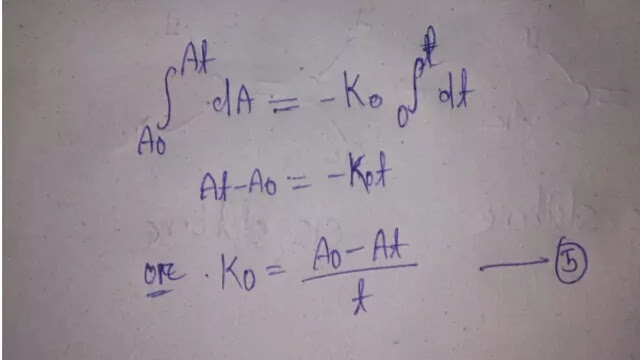 ∫_{A0}^{At} dA = -K0 ∫_0^t dt
At-A0 = -K0t
ore K0 = (A0-At)/t —— ⑤